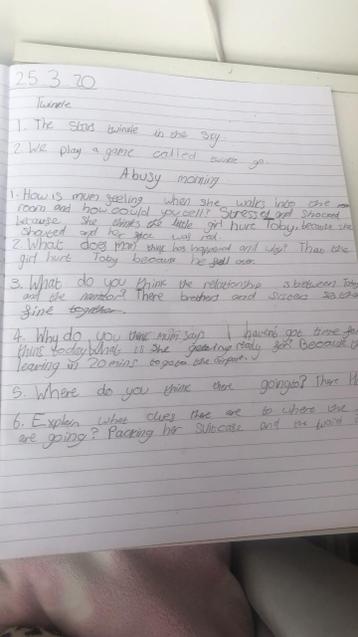 25.3.20
Twinkle
1. The stars twinkle in the sky.
2. We play a game called go.
A busy morning
1. How is mum feeling when she walks into the
room and how could you tell? Stressed and shocked
because She thinks the little girl hurt Toby, because she
shouted and her face was red.
2. What does mam think has happened and why? That the
girl hurt Toby because he fell over.
3. What do you think the relationship is between Toby
and the There brothers and
fine together.
4. Why do you think mum says I havent got time for
this today What is she getting ready for? Because
leaving in 20 mins to go to the airport.
5. Where do you think there going to? There
6. Explain what clues there are to where the
are going? Packing her suitcase and the